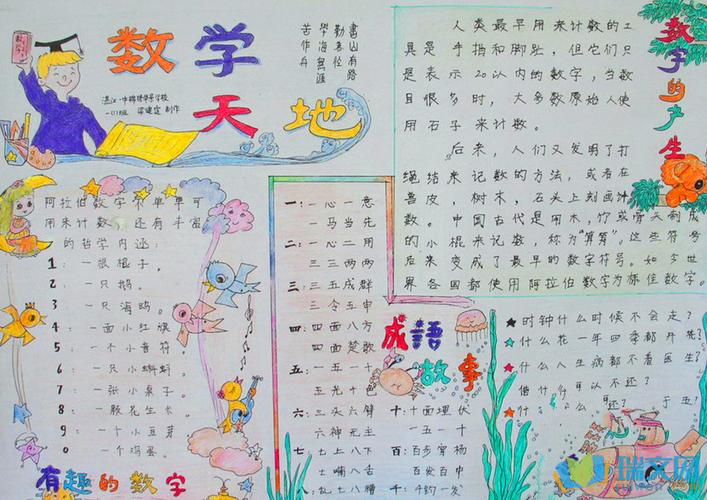 数学
天地
書山有路
勤為径
學海無涯
苦作舟
数字的产生
人类最早用来计数的工
具是手指和脚趾,但它们只
是表示20以内的数字,当数
目很多时,大多数原始人使
用石子来计数。
后来,人们又发明了打
绳结来记数的方法,或者在
兽皮,树木,石头上刻画计
数。中国古代是用木,竹或骨头制成
的小棍来记数,称为“算筹”。这些符号
后来变成了最早的数字符号。如今世
界各国都使用阿拉伯数字为标准数字。
阿拉伯数字不单单可
用来计数,还有丰富
的哲学内涵:
1:一根棍子。
2:一只鹅。
3:一只海鸥。
4:一面小红旗
5:一个音符。
6:一只小蝌蚪。
7:一张小桌子。
8:一颗花生米。
9:一个小豆芽
0:一个鸡蛋。
有趣的数字
一:一心一意
一马当先
二:一心二用
三三两两
三:三五成群
三令五申
四:四面八方
四面楚歌
五:一五一十
五光十色
六:三头六臂
六神无主
七:七上八下
七嘴八舌
八:乱七八糟
十:十面埋伏
一五一十
百:百步穿杨
百发百中
千:千钧一发
成語
故事
时钟什么时候不会走?
什么花一年四季都开花
什么人生病都不看医生?
借什么可以不还?
瑞文网